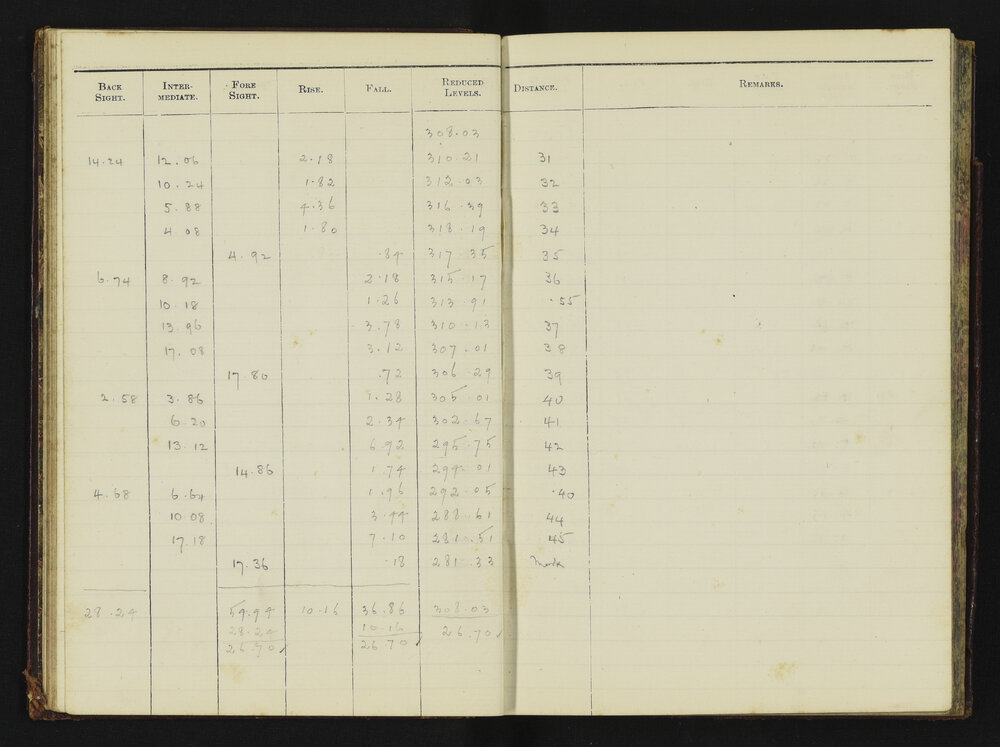 BACK SIGHT. INTER-MEDIATE. FORE SIGHT. RISE. FALL. REDUCED LEVELS. DISTANCE. REMARKS.
308.03
14.24 12.06 2.18 310.21 31
10.24 1.82 312.03 32
5.88 4.36 316.39 33
4.08 1.80 318.19 34
4.92 .84 317.35 35
6.74 8.92 2.18 315.17 36
10.18 1.26 313.91 .55
13.96 3.78 310.13 37
17.08 3.12 307.01 38
17.80 .72 306.29 39
2.58 3.86 1.28 305.01 40
6.20 2.34 302.67 41
13.12 6.92 295.75 42
14.86 1.74 294.01 43
4.68 6.64 1.96 292.05 .40
10.08 3.44 288.61 44
17.18 7.10 281.51 45
17.36 .18 281.33
28.24 54.94 10.16 36.86 308.03
28.24 10.16 26.70
26.70 26.70